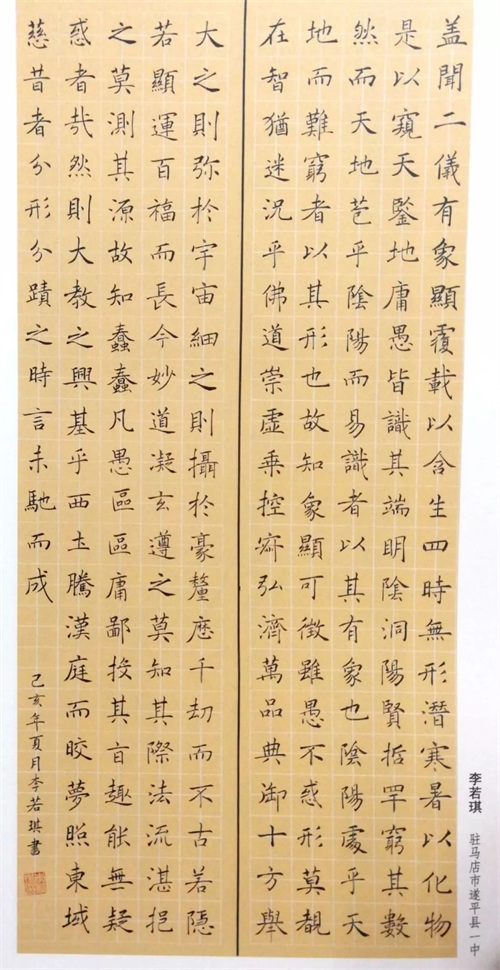 盖聞二儀有象顯覆載以含生四時無形潜寒暑以化物
是以窺天鑒地庸愚皆識其端明陰洞陽賢哲罕窮其數
然而天地苞乎陰陽而易識者以其有象也陰陽處乎天
地而難窮者以其形也故知象顯可徵雖愚不惑形莫覩
在智猶迷況乎佛道崇虛乘控寂弘濟萬品典御十方舉
大之則弥於宇宙細之則攝於豪釐歷千劫而不古若隱
若顯運百福而長今妙道凝玄遵之莫知其際法流湛挹
之莫測其源故知蠢蠢凡愚區區庸鄙投其旨趣能無疑
惑者哉然則大教之興基乎西土騰漢庭而皎夢照東域
慈昔者分形分蹟之時言未馳而成
己亥年夏月李若琪書
李若琪 驻马店市遂平县一中